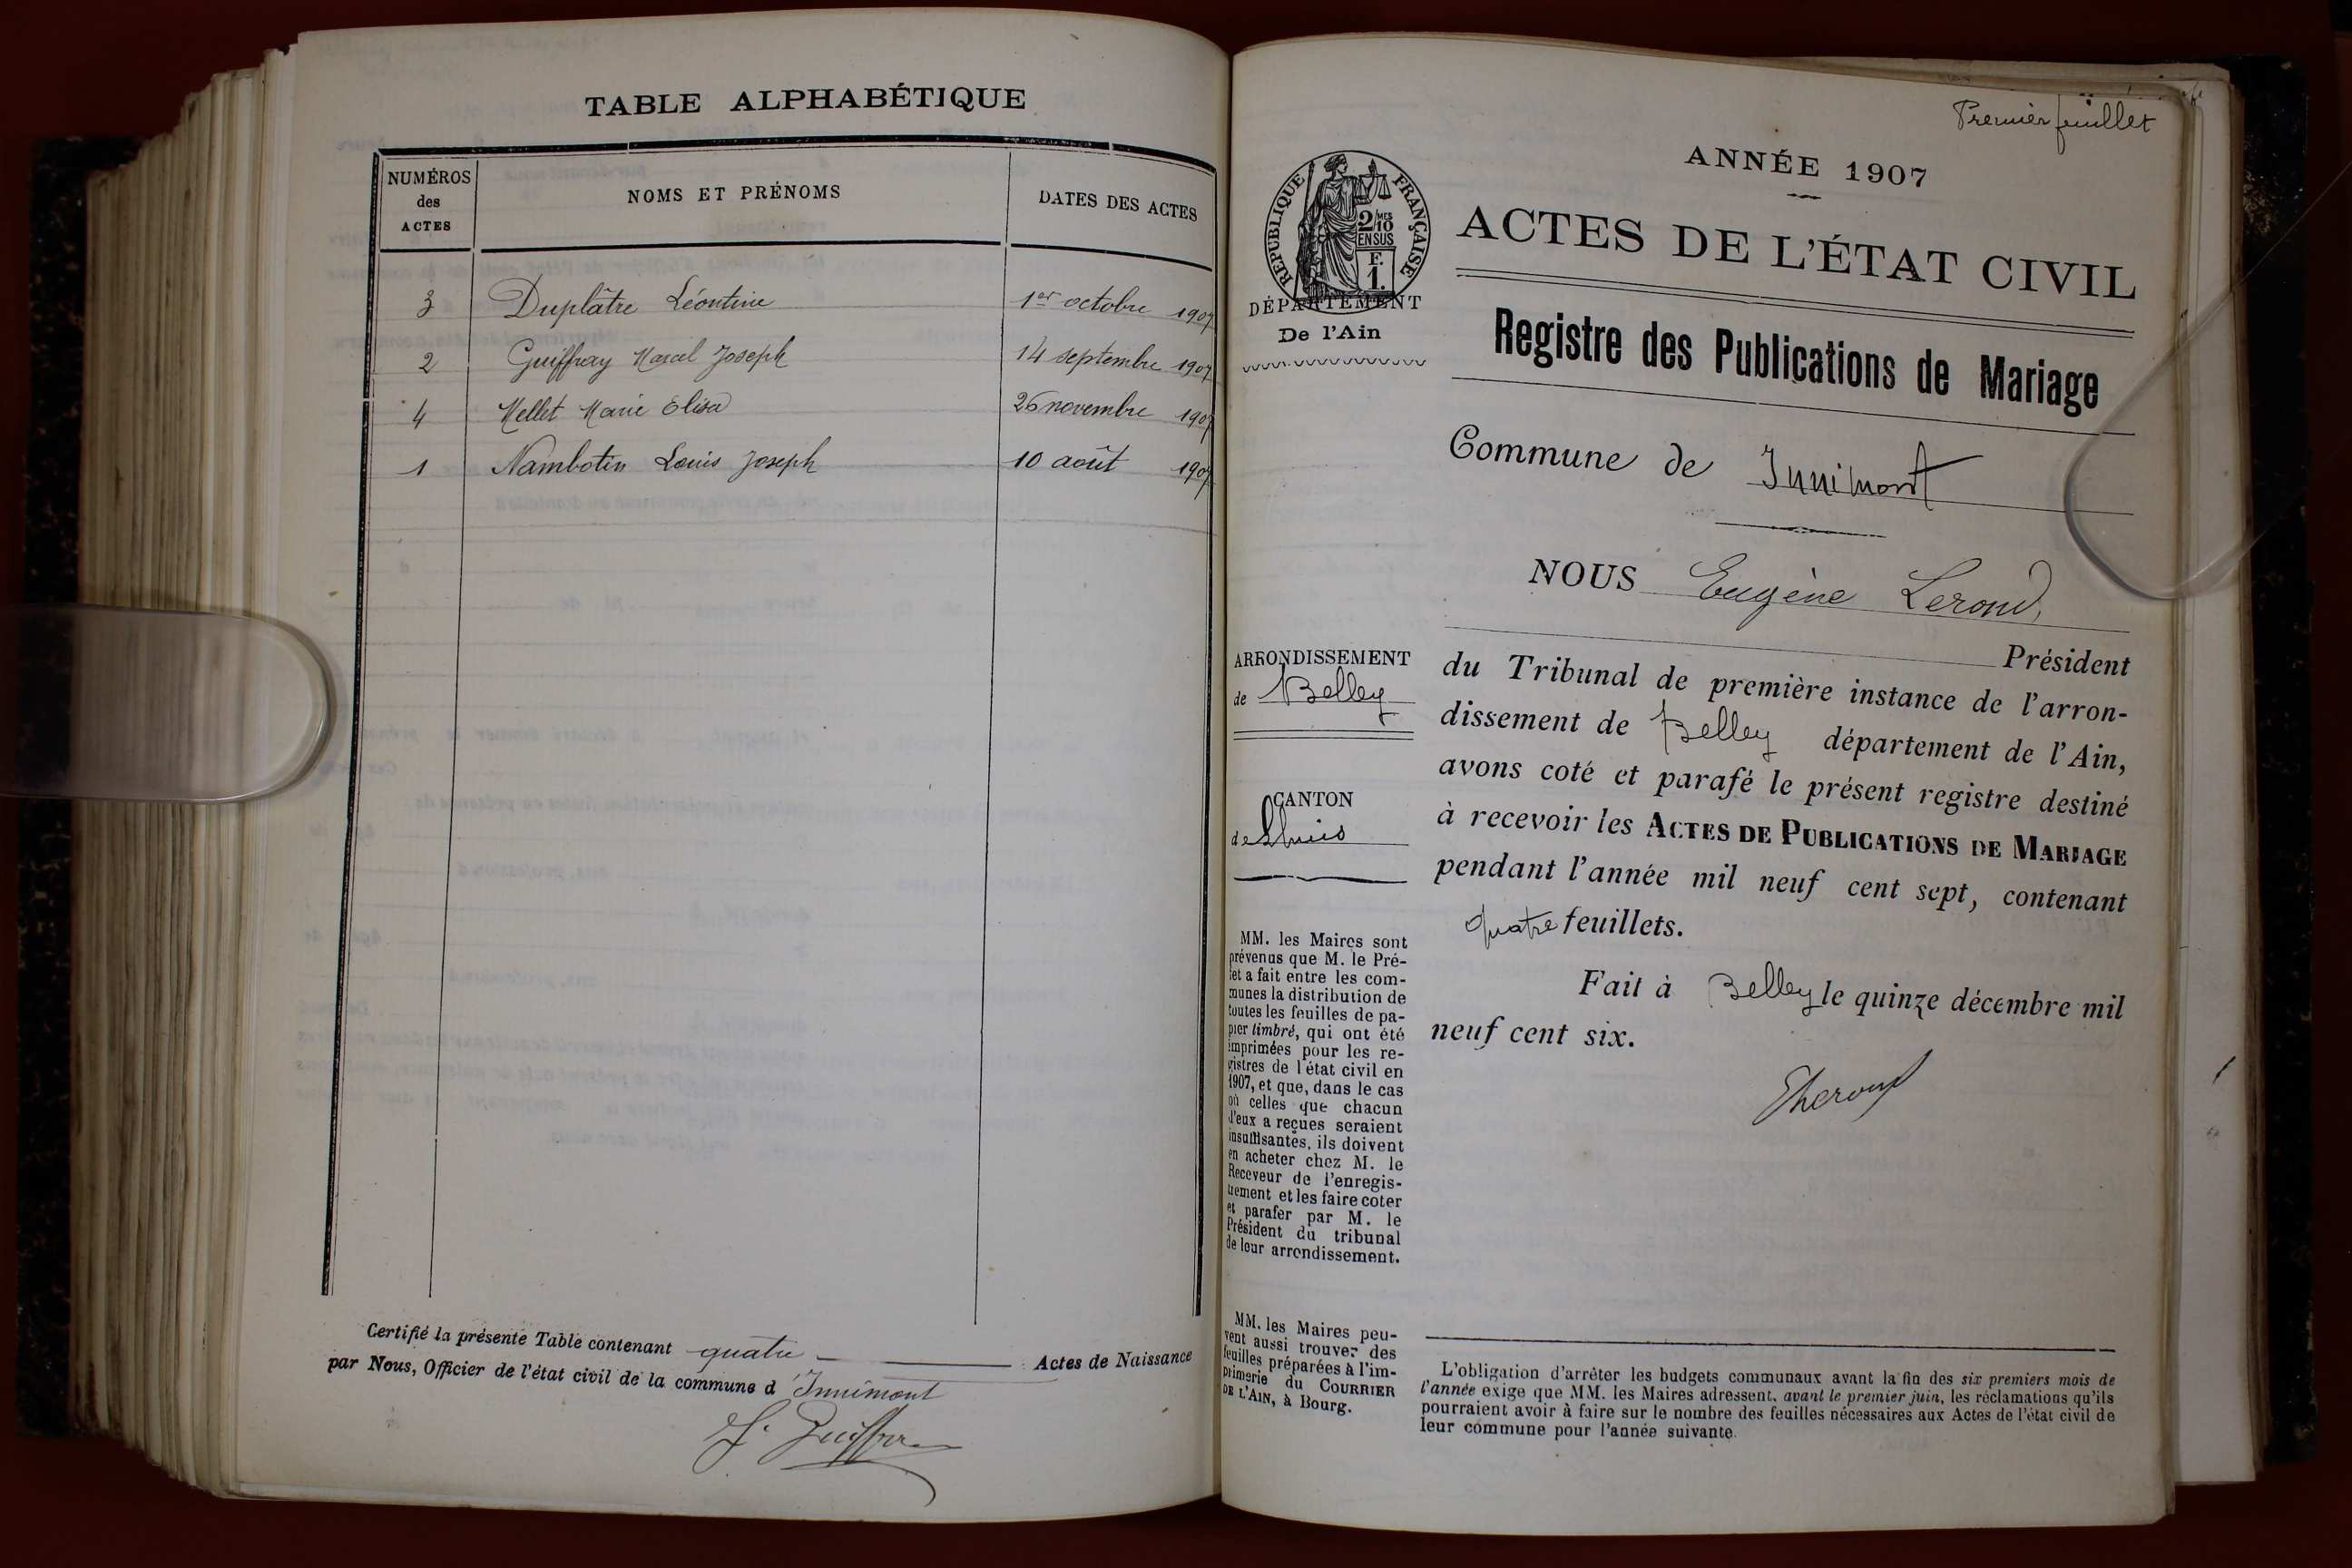 TABLE ALPHABÉTIQUE
NUMÉROS
des
ACTES
NOMS ET PRÉNOMS
DATES DES ACTES
3 Duplâtre Léontine 1er octobre 1907
2 Guiffray Marcel Joseph 14 septembre 1907
4 Mellet Marie Elisa 26 novembre 1907
1 Nambotin Louis Joseph 10 août 1907
Certifié la présente Table contenant quatre Actes de Naissance
par Nous, Officier de l'état civil de la commune d'Innimont
Premier feuillet
ANNÉE 1907
ACTES DE L'ÉTAT CIVIL
Registre des Publications de Mariage
RÉPUBLIQUE FRANÇAISE
2/10 MES
EN SUS
F.
1.
DÉPARTEMENT
De l'Ain
Commune de Innimont
NOUS Eugène Lerond,
Président
du Tribunal de première instance de l'arron-
dissement de Belley département de l'Ain,
avons coté et parafé le présent registre destiné
à recevoir les ACTES DE PUBLICATIONS DE MARIAGE
pendant l'année mil neuf cent sept, contenant
quatre feuillets.
Fait à Belley le quinze décembre mil
neuf cent six.
ARRONDISSEMENT
de Belley
CANTON
de Lhuis
MM. les Maires sont
prévenus que M. le Pré-
fet a fait entre les com-
munes la distribution de
toutes les feuilles de pa-
pier timbré, qui ont été
imprimées pour les re-
gistres de l'état civil en
1907, et que, dans le cas
où celles que chacun
d'eux a reçues seraient
insuffisantes, ils doivent
en acheter chez M. le
Receveur de l'enregis-
trement et les faire coter
et parafer par M. le
Président du tribunal
de leur arrondissement.
MM. les Maires peu-
vent aussi trouver des
feuilles préparées à l'im-
primerie du COURRIER
DE L'AIN, à Bourg.
L'obligation d'arrêter les budgets communaux avant la fin des six premiers mois de
l'année exige que MM. les Maires adressent, avant le premier juin, les réclamations qu'ils
pourraient avoir à faire sur le nombre des feuilles nécessaires aux Actes de l'état civil de
leur commune pour l'année suivante.